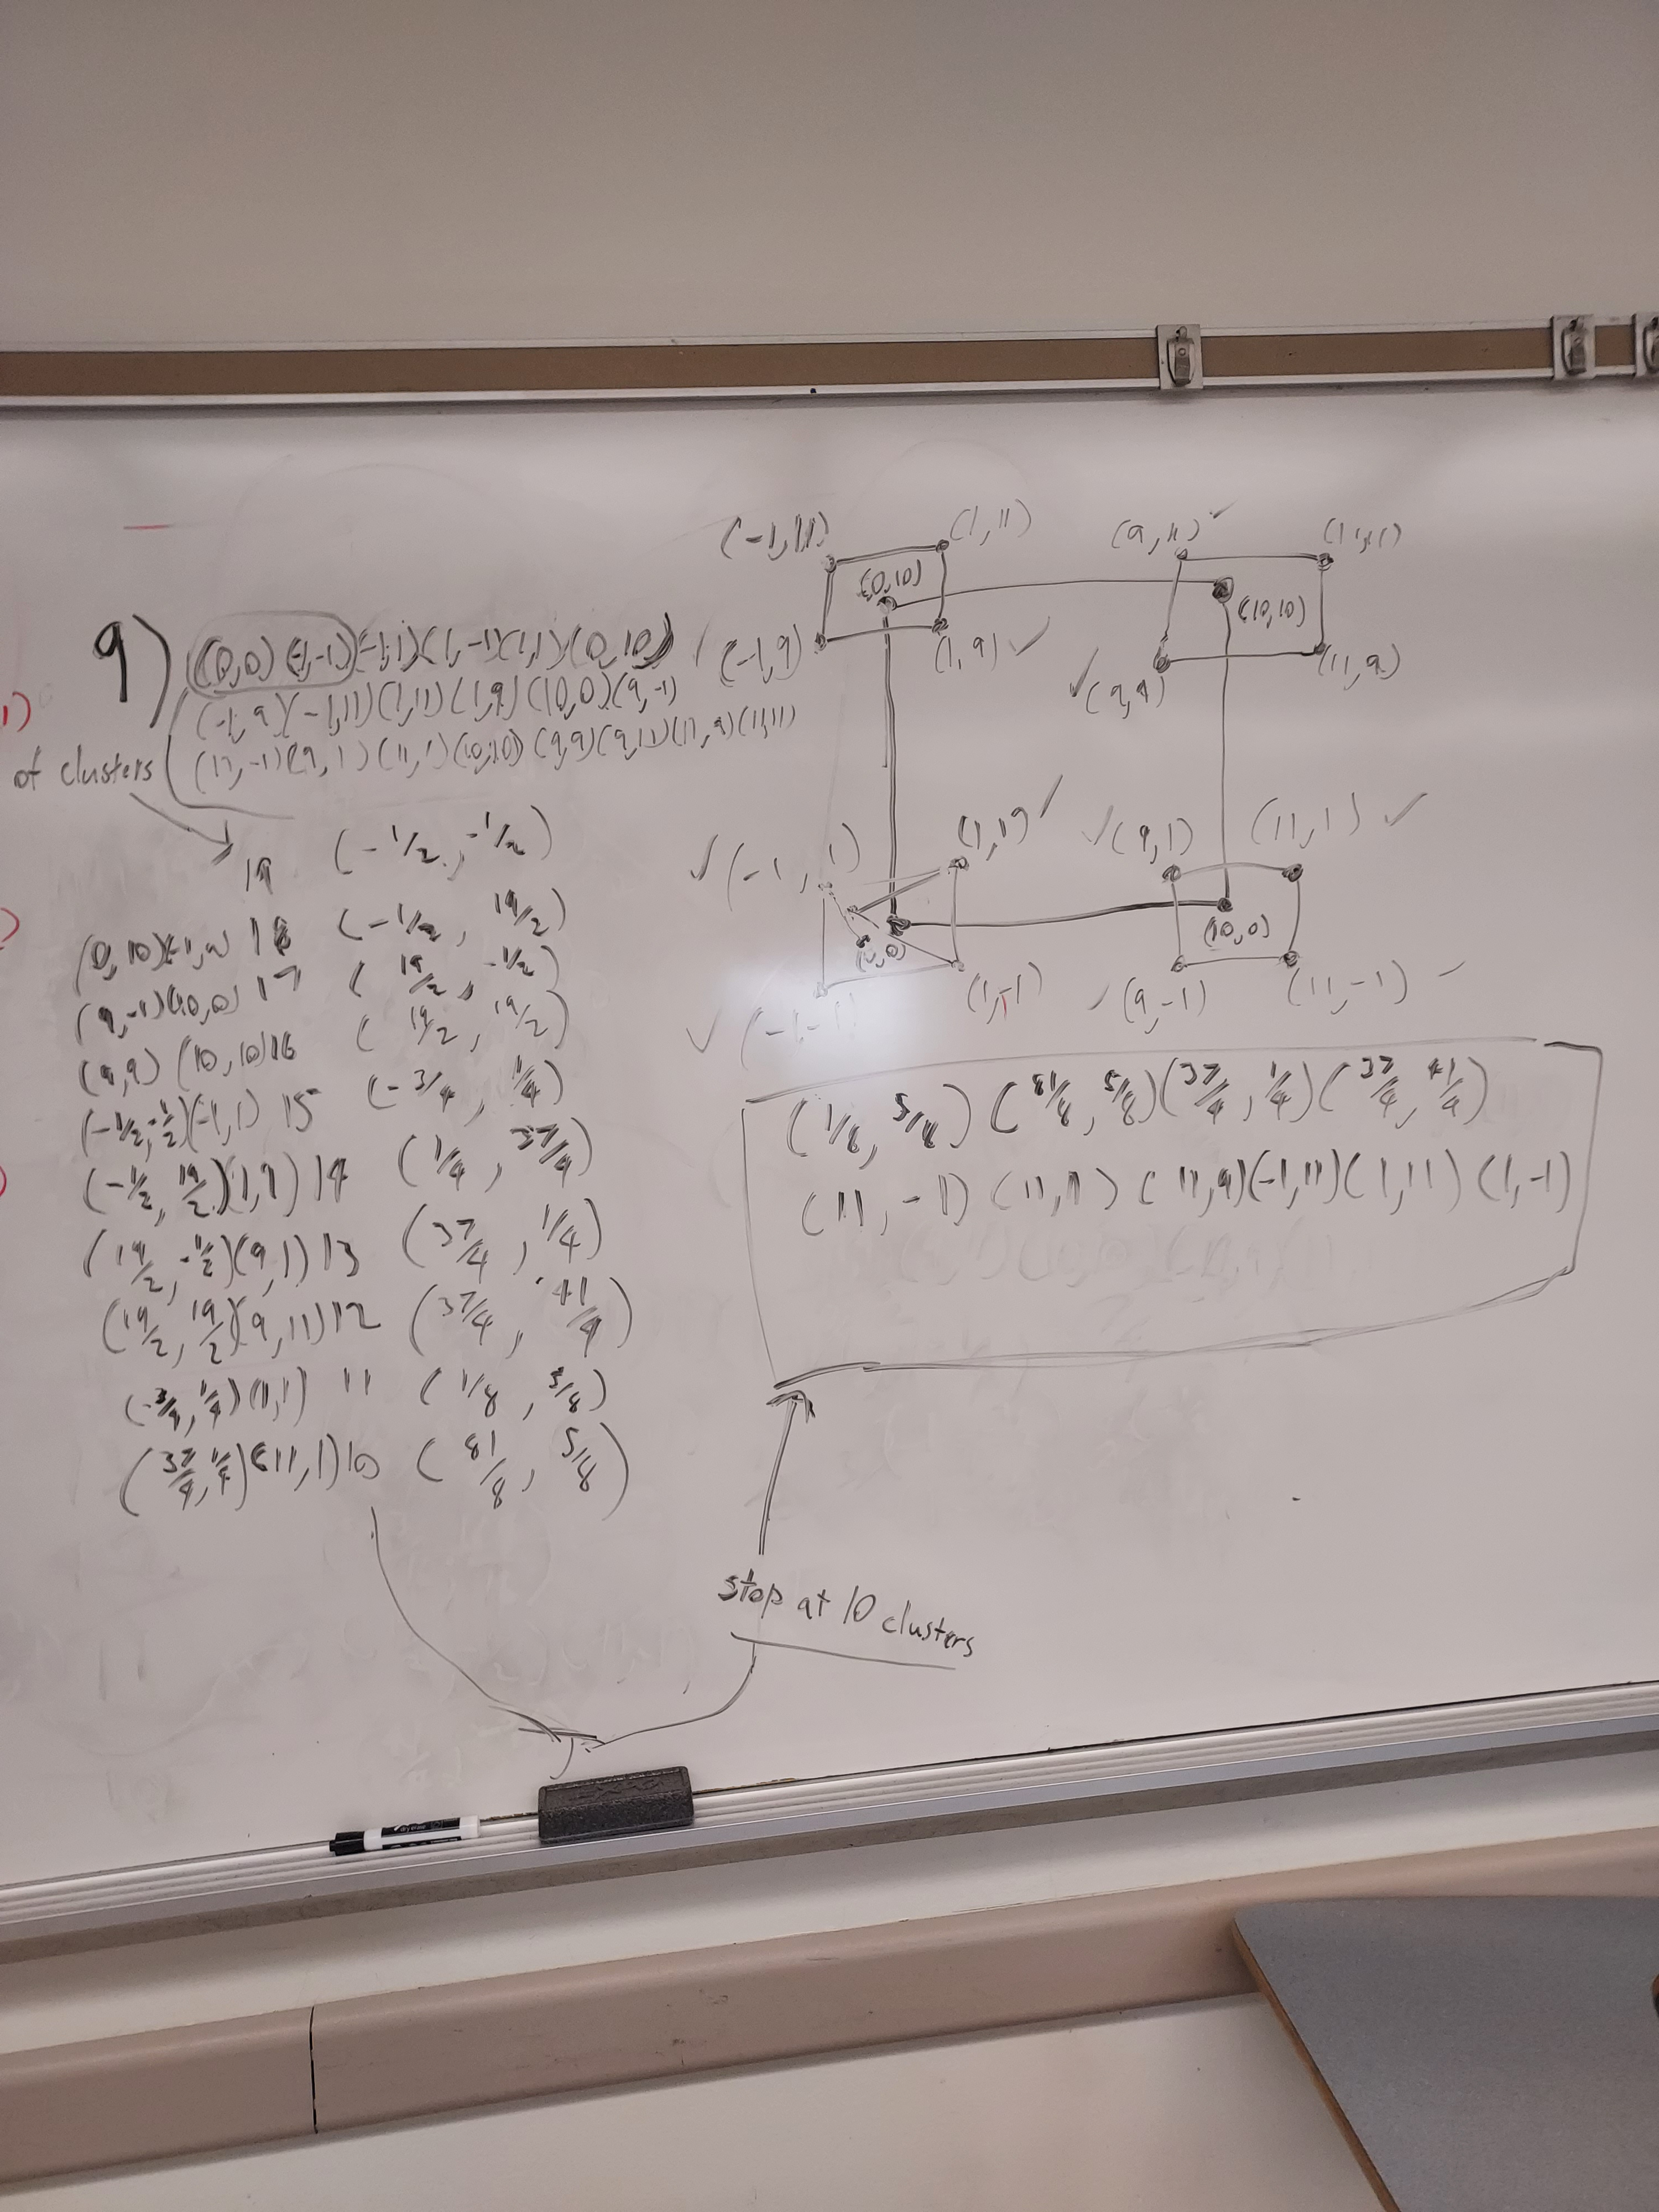 9) (0,0) (-1,-1) (-1,1) (1,-1) (1,1) (0,10)
(-1,9) (-1,11) (1,11) (1,9) (10,0) (9,-1)
(11,-1) (9,1) (11,1) (10,10) (9,9) (9,11) (11,9) (11,11)
1)
of clusters
19 (-1/2, -1/2)
(0,10)(-1,9) 18 (-1/2, 19/2)
(9,-1)(10,0) 17 (19/2, -1/2)
(9,9) (10,10) 16 (19/2, 19/2)
(-1/2,-1/2)(-1,1) 15 (-3/4, 1/4)
(-1/2, 19/2)(1,9) 14 (1/4, 37/4)
(19/2, -1/2)(9,1) 13 (37/4, 1/4)
(19/2, 19/2)(9,11) 12 (37/4, 41/4)
(-3/4, 1/4)(1,1) 11 (1/8, 5/8)
(37/4, 1/4)(11,1) 10 (81/8, 5/8)
(-1,11) (1,11) (9,11) (11,11)
(0,10) (10,10)
(-1,9) (1,9) ✓ ✓ (9,9) (11,9)
✓ (-1, 1) (1,1) ✓ ✓ (9,1) (11,1) ✓
(0,0) (10,0)
✓ (-1,-1) (1,-1) ✓ (9,-1) (11,-1) ✓
(1/8, 5/8) (81/8, 5/8) (37/4, 1/4) (37/4, 41/4)
(11,-1) (11,1) (11,9) (-1,11) (1,11) (1,-1)
stop at 10 clusters